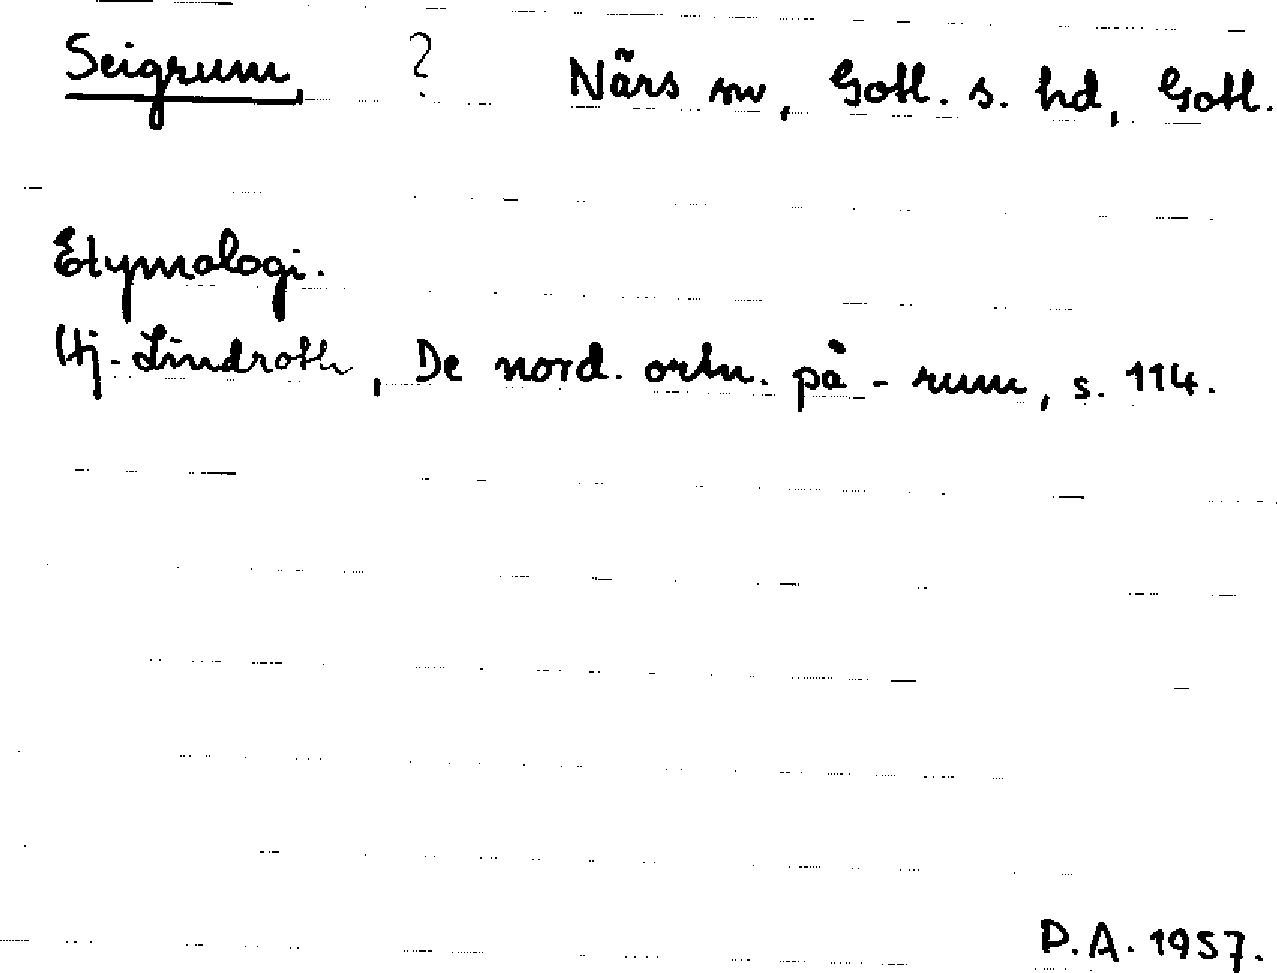 Seigrum, ? Närs sn, Gotl. s. hd, Gotl.
Etymologi.
Hj. Lindroth, De nord. ortn. på -rum, s. 114.
D.A. 1957.